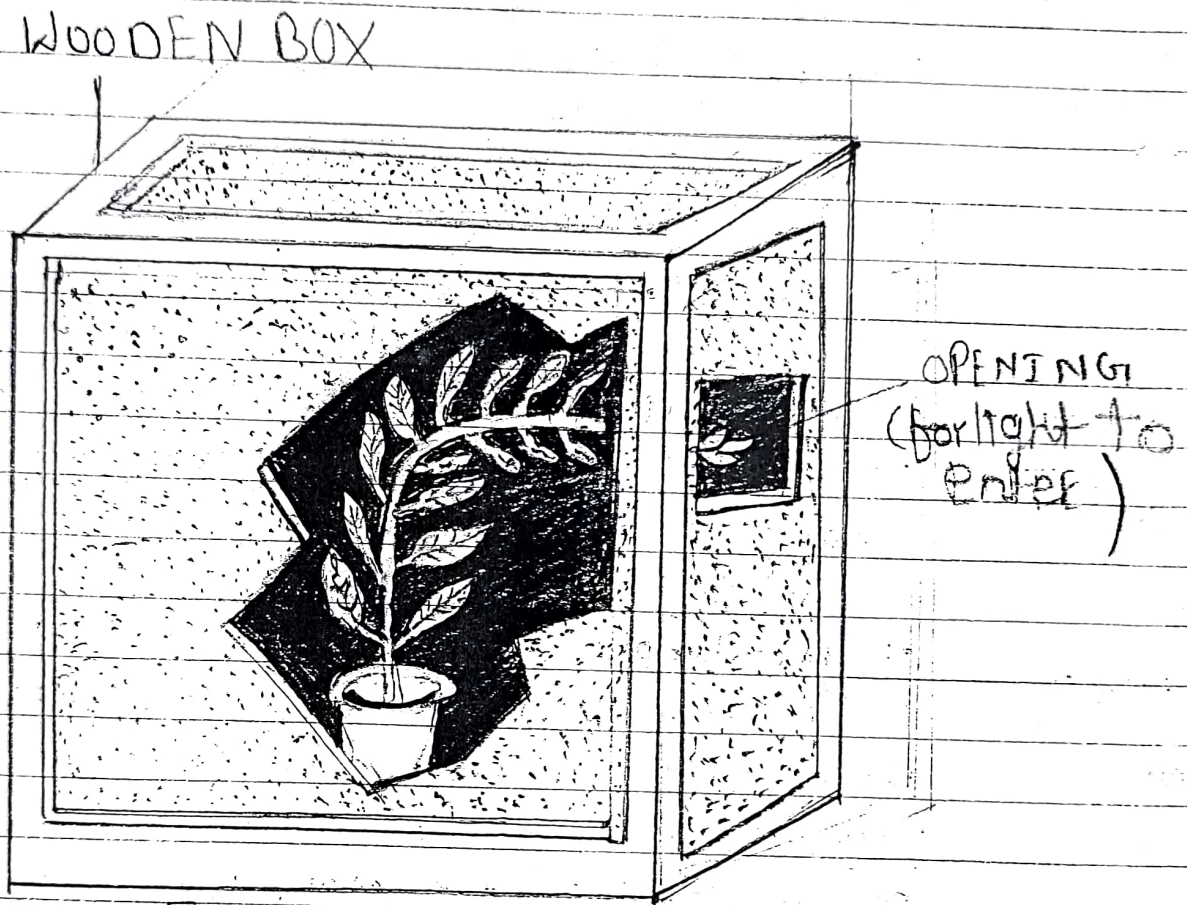 WOODEN BOX
OPENING
(for light to
enter)